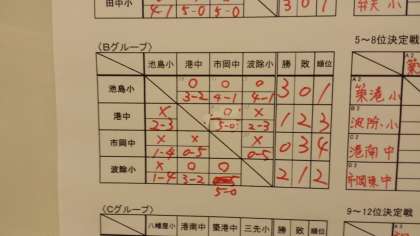 田中小 4-1 5-0 5-0 3 0 1
(Bグループ)
池島小 港中 市岡中 波除小 勝 敗 順位
池島小 ○ 3-2 ○ 4-1 ○ 4-1 3 0 1
港中 × 2-3 ○ 5-0 × 2-3 1 2 3
市岡中 × 1-4 × 0-5 × 0-5 0 3 4
波除小 × 1-4 ○ 3-2 ○ 5-0 2 1 2
(Cグループ)
八幡屋小 港南中 築港中 三先小 勝 敗 順位
弁天小
5～8位決定戦
A2 築港小
B2 波除小
C2 港南中
D2 市岡東中
9～12位決定戦
A3